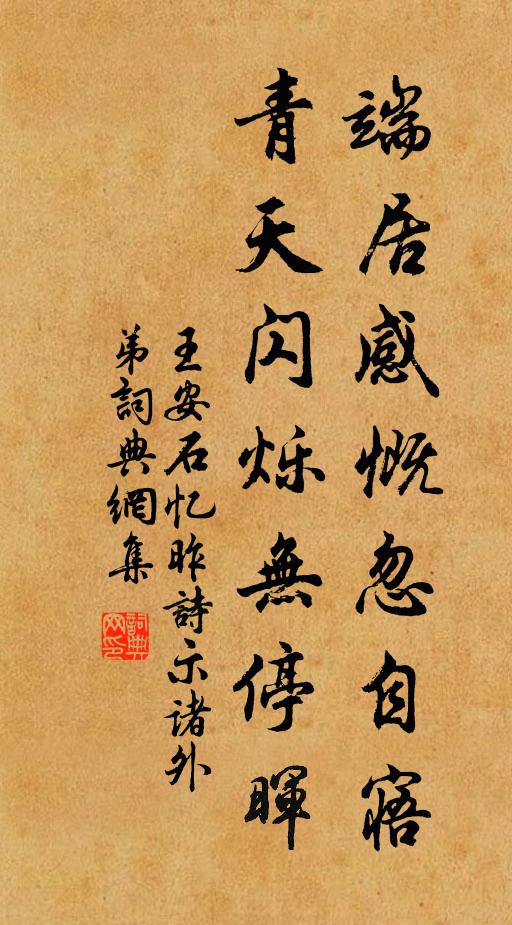 端居感慨忽自寤
青天闪烁無停暉
王安石忆昨詩示诸外
弟詞典網集
詞典
网印